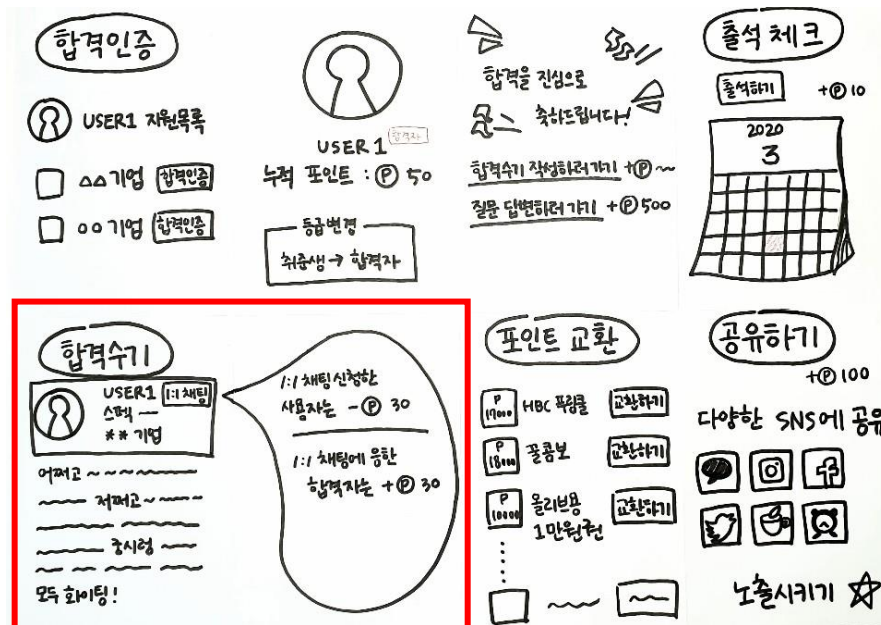 합격인증
USER1 지원목록
△△기업 합격인증
○○기업 합격인증
USER1 합격자
누적 포인트 : Ⓟ 50
등급변경
취준생 → 합격자
합격을 진심으로
축하드립니다!
합격수기 작성하러가기 +Ⓟ~
질문 답변하러 가기 +Ⓟ500
출석 체크
출석하기 +Ⓟ10
2020
3
합격수기
USER1 1:1 채팅
스펙 —
** 기업
어쩌고 ~~~~
저쩌고 ~~~
중시렁
모두 화이팅!
1:1 채팅신청한
사용자는 -Ⓟ 30
1:1 채팅에 응한
합격자는 +Ⓟ 30
포인트 교환
P 17000 HBC 푸링쿨 교환하기
P 18000 꿀콤보 교환하기
P 10000 올리브용 교환하기
1만원권
공유하기
+Ⓟ100
다양한 SNS에 공유
노출시키기 ☆